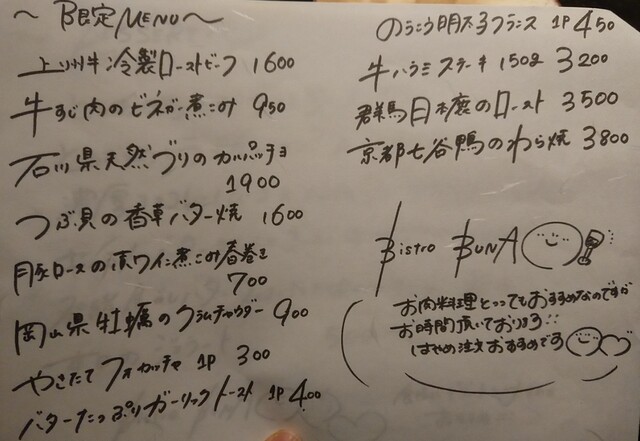 〜限定MENU〜
上州牛冷製ローストビーフ 1600
牛すじ肉のビネガー煮こみ 950
石川県天然ブリのカルパッチョ
1900
つぶ貝の香草バター焼 1600
豚ロースの赤ワイン煮こみ春巻き
700
岡山県牡蠣のクラムチャウダー 900
やきたてフォカッチャ 1P 300
バターたっぷりガーリックトースト 1P 400
のうこう明太子フランス 1P 450
牛ハラミステーキ 150g 3200
群馬日本鹿のロースト 3500
京都七谷鴨のわら焼 3800
Bistro BunA
お肉料理とってもおすすめなのですが
お時間頂いております!!
はやめ注文おすすめです